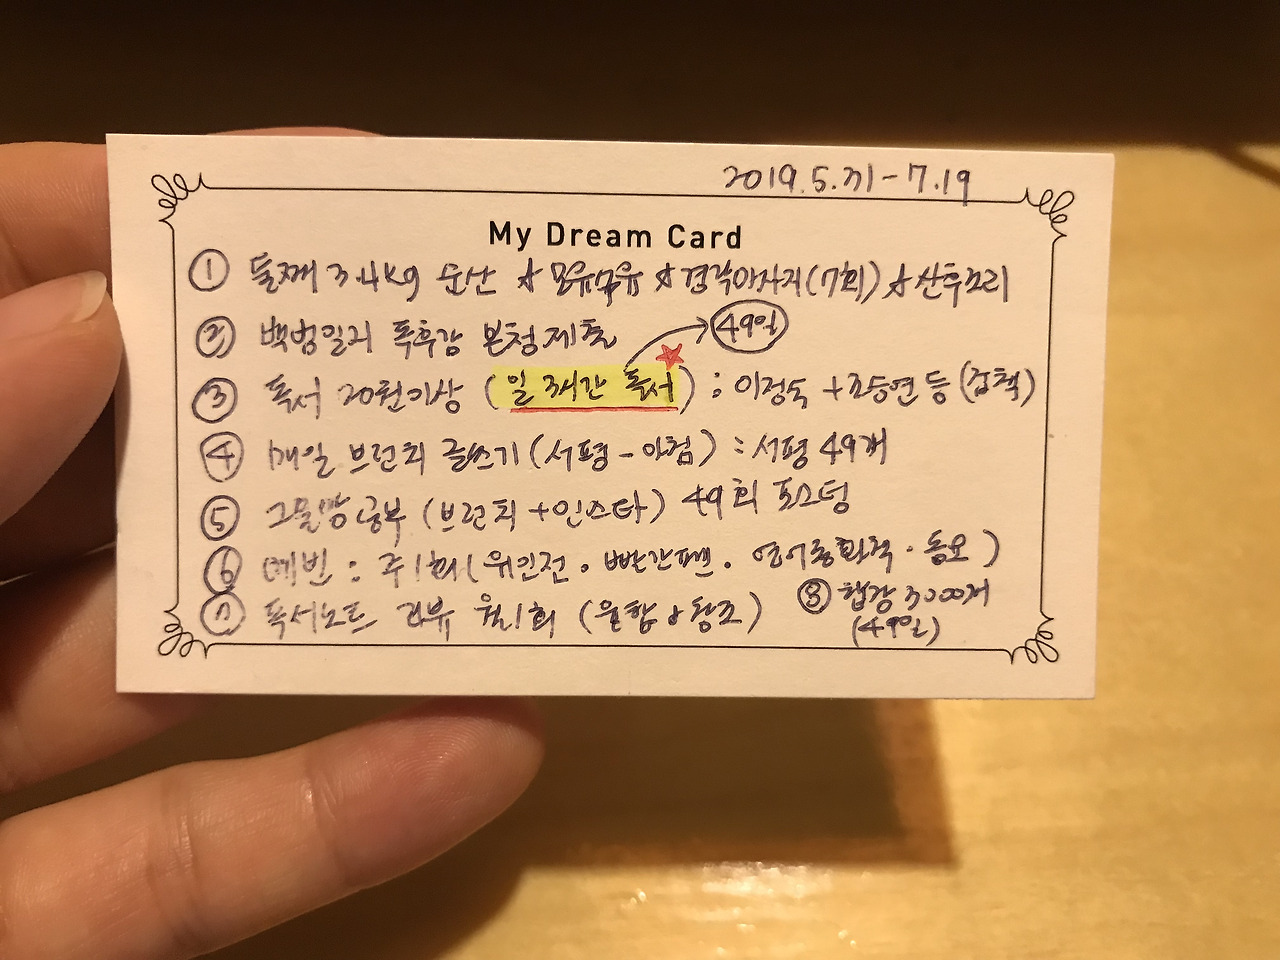 2019.5.31-7.19
My Dream Card
① 둘째 3.4kg 순산 ☆ 모유수유 ☆ 경락마사지(7회) ☆ 산후조리
② 백범일지 독후감 본청제출
49일
③ 독서 20권이상 (일 3시간 독서) : 이정숙 + 조승연 등 (잡책)
④ 매일 브런치 글쓰기 (서평-아침) : 서평 49개
⑤ 그물망공부 (브런치+인스타) 49회 포스팅
⑥ 예빈 : 주1회 (위인전 · 빨간펜 · 영어동화책 · 동요)
⑦ 독서노트 리뷰 월1회 (융합 & 창조)
⑧ 합장 3000개
(49일)